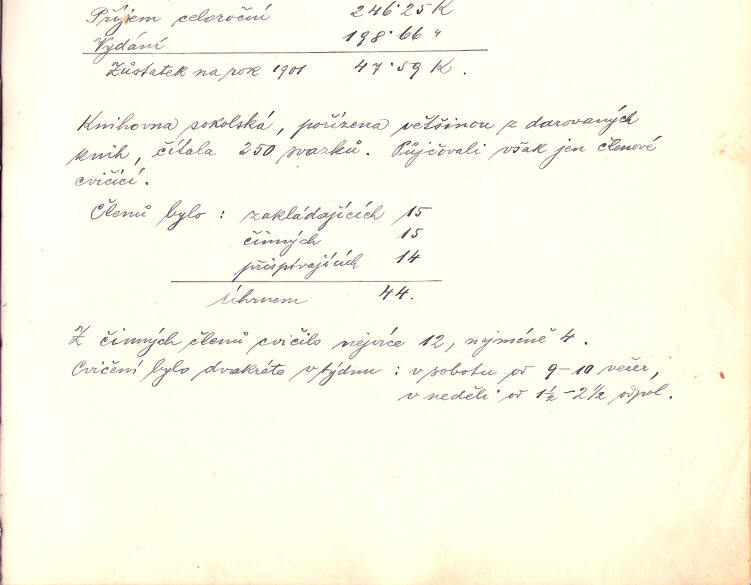 Příjem celoroční 246·25 K
Vydání 198·66 "
Zůstatek na rok 1901 47·59 K.
Knihovna sokolská, pořízena většinou z darovaných
knih, čítala 250 svazků. Půjčovali však jen členové
cvičící.
Členů bylo : zakládajících 15
činných 15
přispívajících 14
Úhrnem 44.
Z činných členů cvičilo nejvíce 12, nejméně 4.
Cvičení bylo dvakráte v týdnu : v sobotu od 9–10 večer,
v neděli od 1½–2½ odpol.